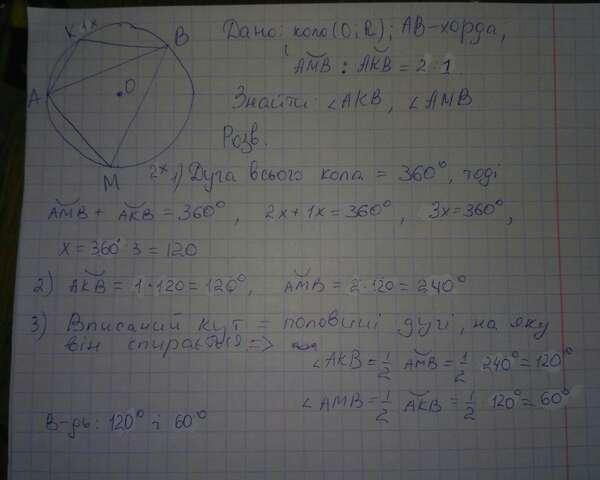 K 1x
B
A
O
M
2x
Дано: коло (O; R); AB-хорда,
AMB : AKB = 2 : 1
Знайти: ∠AKB, ∠AMB
Розв.
1) Дуга всього кола = 360°, тоді
AMB + AKB = 360°, 2x+1x=360°, 3x=360°,
x=360°:3=120
2) AKB = 1·120=120°, AMB = 2·120=240°
3) Вписаний кут = половині дугі, на яку
він спирається =>
∠AKB = 1/2 AMB = 1/2 240°=120°
∠AMB = 1/2 AKB = 1/2 120°=60°
В-дь: 120° і 60°